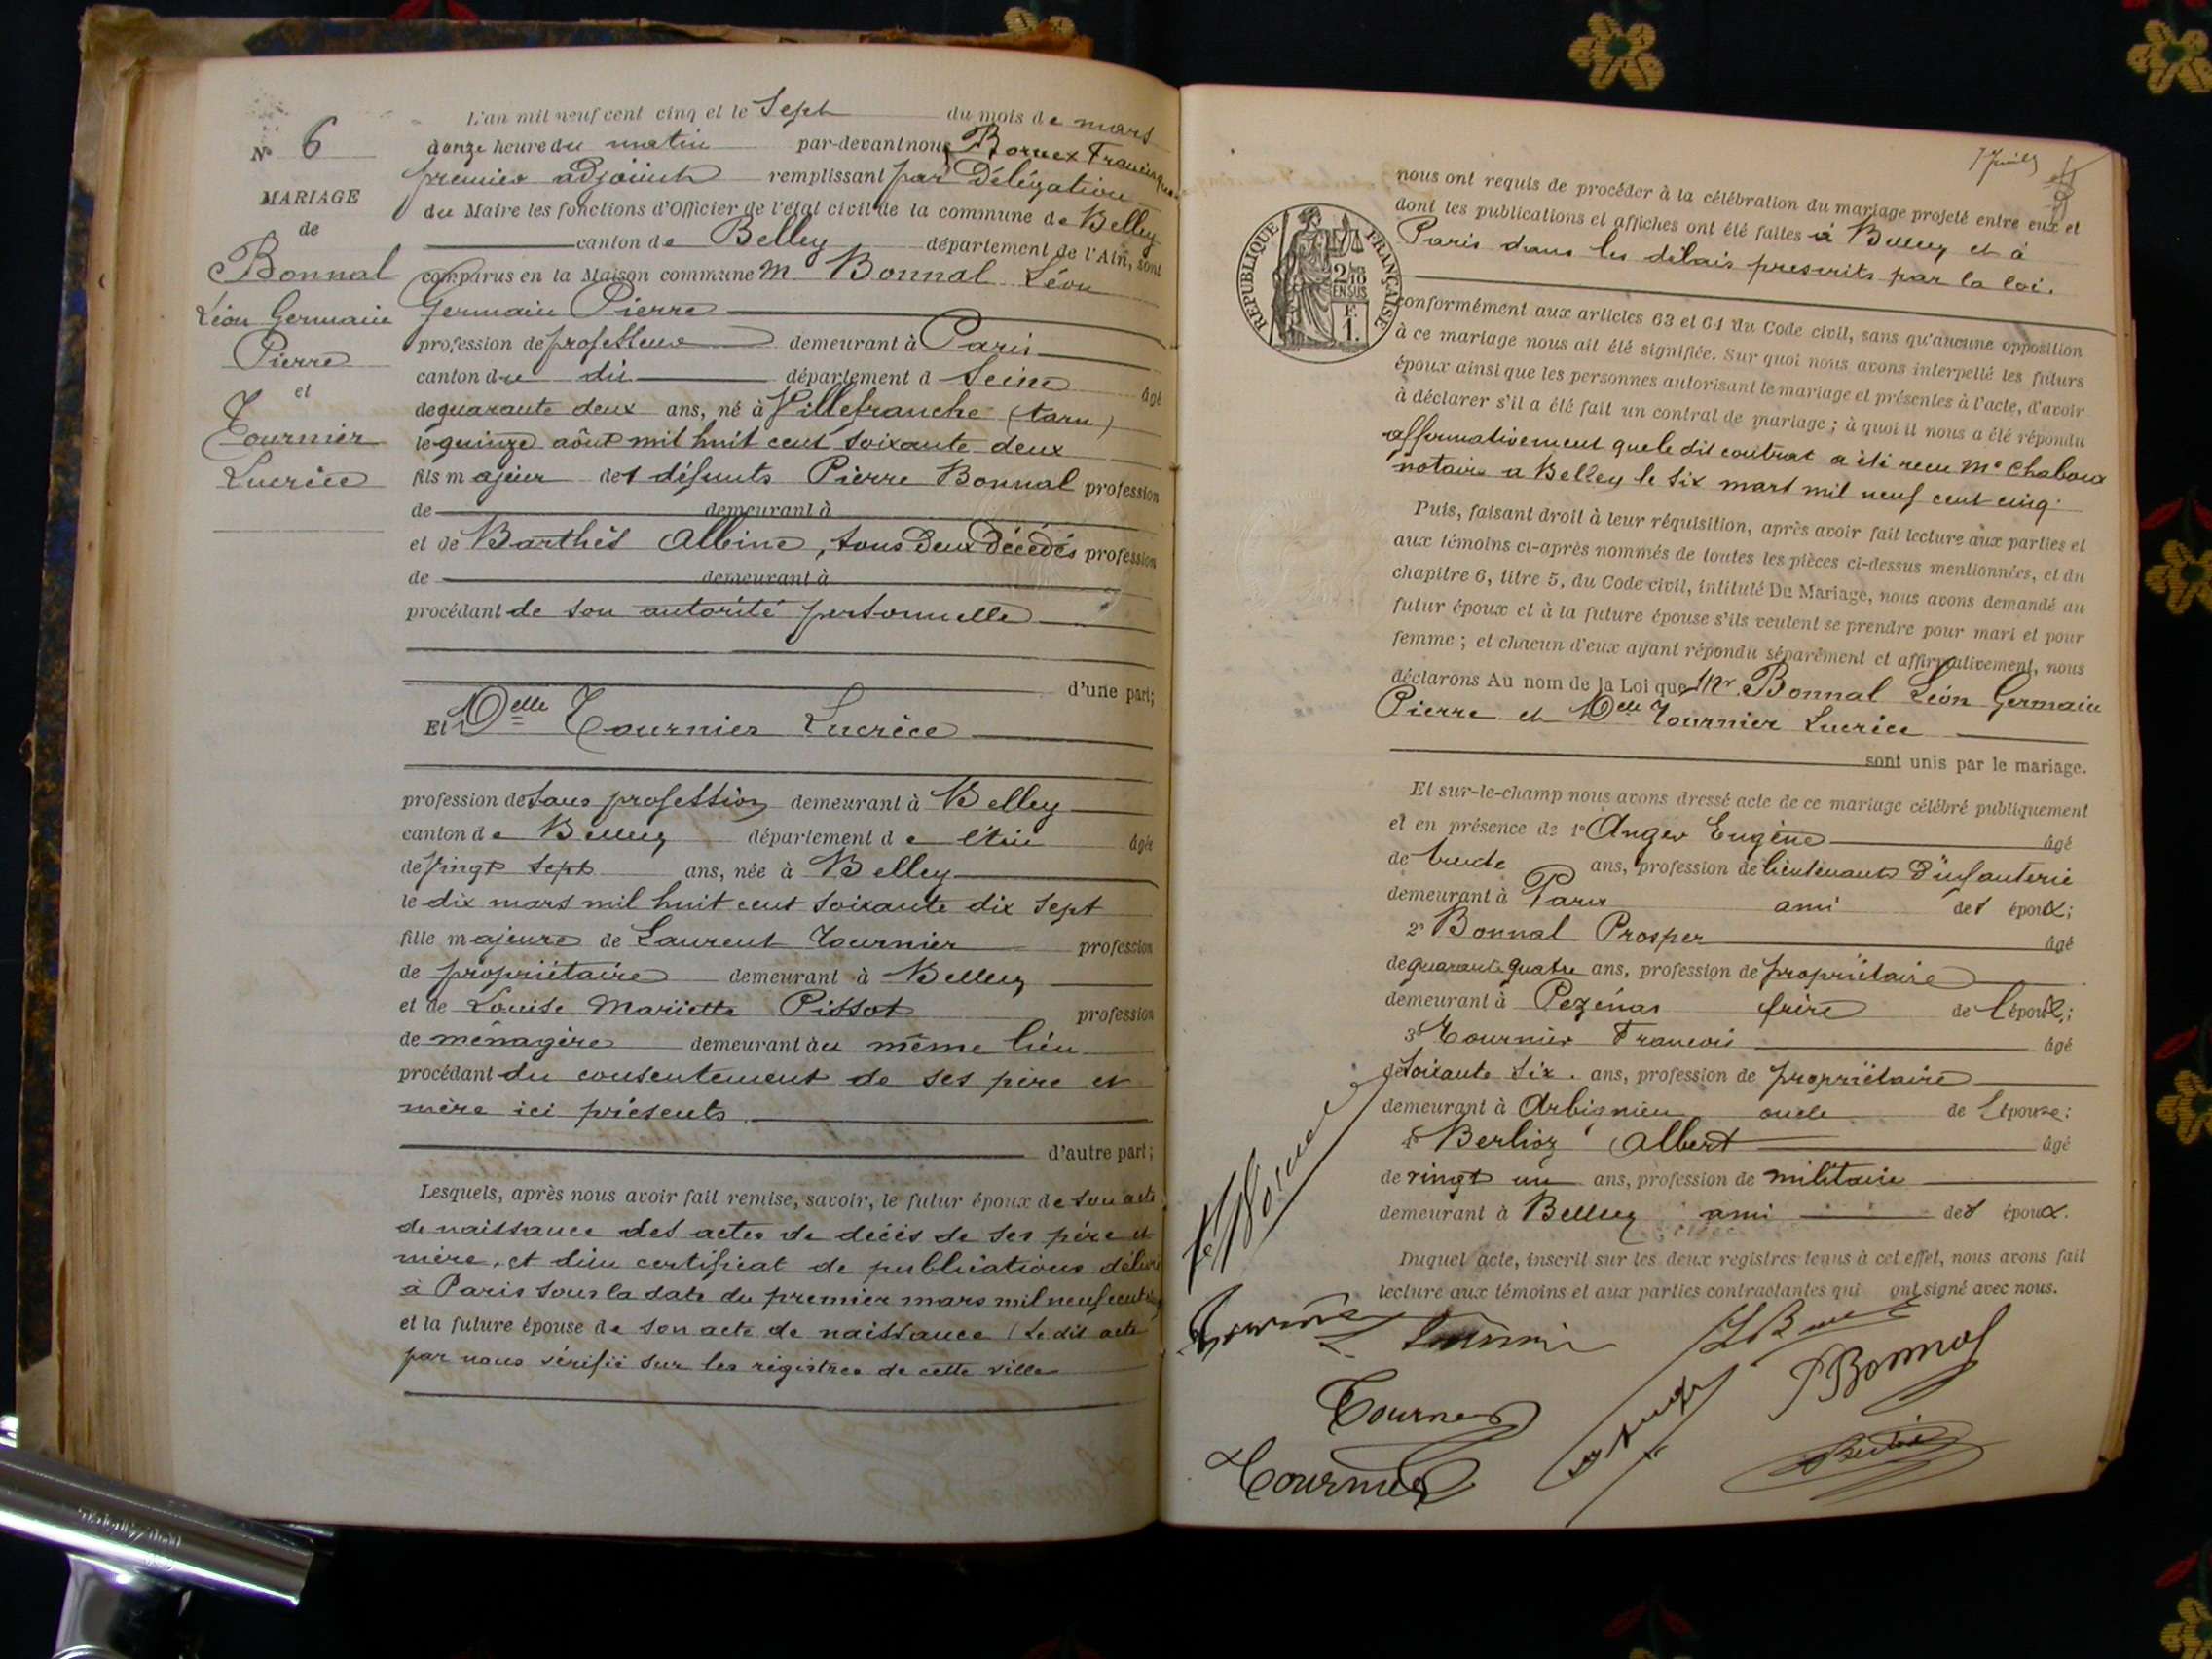 N° 6
MARIAGE
de
Bonnal
Léon Germain
Pierre
et
Tournier
Lucrèce
L'an mil neuf cent cinq et le Sept du mois de mars
à onze heure du matin par-devant nous Bornex
premier adjoint remplissant par Délégation
du Maire les fonctions d'Officier de l'état civil de la commune de Belley
canton de Belley département de l'Ain, sont
comparus en la Maison commune M Bonnal Léon
Germain Pierre
profession de professeur demeurant à Paris
canton du dit département d Seine âgé
de quarante deux ans, né à Villefranche (tarn)
le quinze août mil huit cent soixante deux
fils majeur des défunts Pierre Bonnal profession
de demeurant à
et de Barthès Albine, tous Deux Décédés profession
de demeurant à
procédant de son autorité personnelle
d'une part;
Et Delle Tournier Lucrèce
profession de sans profession demeurant à Belley
canton de Belley département de l'Ain âgée
de vingt sept ans, née à Belley
le dix mars mil huit cent soixante dix sept
fille majeure de Laurent Tournier profession
de propriétaire demeurant à Belley
et de Louise Mariette Pissot profession
de ménagère demeurant au même lieu
procédant du consentement de ses père et
mère ici présents
d'autre part;
Lesquels, après nous avoir fait remise, savoir, le futur époux de son acte
de naissance des actes de décès de ses père et
mère, et d'un certificat de publications délivré
à Paris sous la date du premier mars mil neuf cent cinq
et la future épouse de son acte de naissance (Le dit acte
par nous vérifié sur les registres de cette ville
nous ont requis de procéder à la célébration du mariage projeté entre eux et
dont les publications et affiches ont été faites à Belley et à
Paris dans les délais prescrits par la loi.
RÉPUBLIQUE FRANÇAISE
2/10 EN SUS
F. 1.
conformément aux articles 63 et 64 du Code civil, sans qu'aucune opposition
à ce mariage nous ait été signifiée. Sur quoi nous avons interpellé les futurs
époux ainsi que les personnes autorisant le mariage et présentes à l'acte, d'avoir
à déclarer s'il a été fait un contrat de mariage; à quoi il nous a été répondu
affirmativement que le dit contrat a été recu Me Chaboux
notaire a Belley le six mars mil neuf cent cinq.
Puis, faisant droit à leur réquisition, après avoir fait lecture aux parties et
aux témoins ci-après nommés de toutes les pièces ci-dessus mentionnées, et du
chapitre 6, titre 5, du Code civil, intitulé Du Mariage, nous avons demandé au
futur époux et à la future épouse s'ils veulent se prendre pour mari et pour
femme; et chacun d'eux ayant répondu séparément et affirmativement, nous
déclarons Au nom de la Loi que Mr Bonnal Léon Germain
Pierre et Delle Tournier Lucrèce
sont unis par le mariage.
Et sur-le-champ nous avons dressé acte de ce mariage célébré publiquement
et en présence de 1° Anger Eugène âgé
de trente ans, profession de lieutenant D'infanterie
demeurant à Paris ami des époux;
2° Bonnal Prosper âgé
de quarante quatre ans, profession de propriétaire
demeurant à Pezénas frère de l'époux;
3° Tournier Francois âgé
de soixante six. ans, profession de propriétaire
demeurant à Arbignieu oncle de l'épouse;
4° Berlioz Albert âgé
de vingt un ans, profession de militaire
demeurant à Belley ami des époux.
Duquel acte, inscrit sur les deux registres tenus à cet effet, nous avons fait
lecture aux témoins et aux parties contractantes qui ont signé avec nous.
Tournier
PBonnal
Tournier